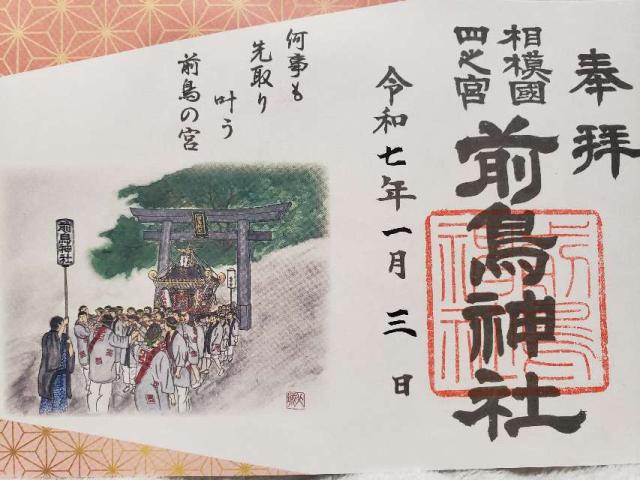 奉拝
相模國
四之宮
前鳥神社
令和七年一月三日
何事も
先取り
叶う
前鳥の宮
前鳥神社
前鳥神社